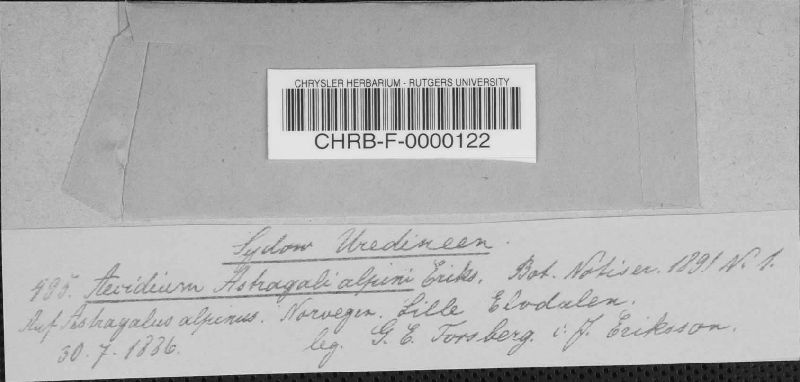 CHRYSLER HERBARIUM - RUTGERS UNIVERSITY
CHRB-F-0000122
Sydow Uredineen.
495. Aecidium Astragali alpini Eriks. Bot. Notiser. 1891 N. 1.
Auf Astragalus alpinus. Norvegen. Lille Elvdalen.
30. 7. 1886. leg. G. E. Forsberg. c. J. Eriksson.